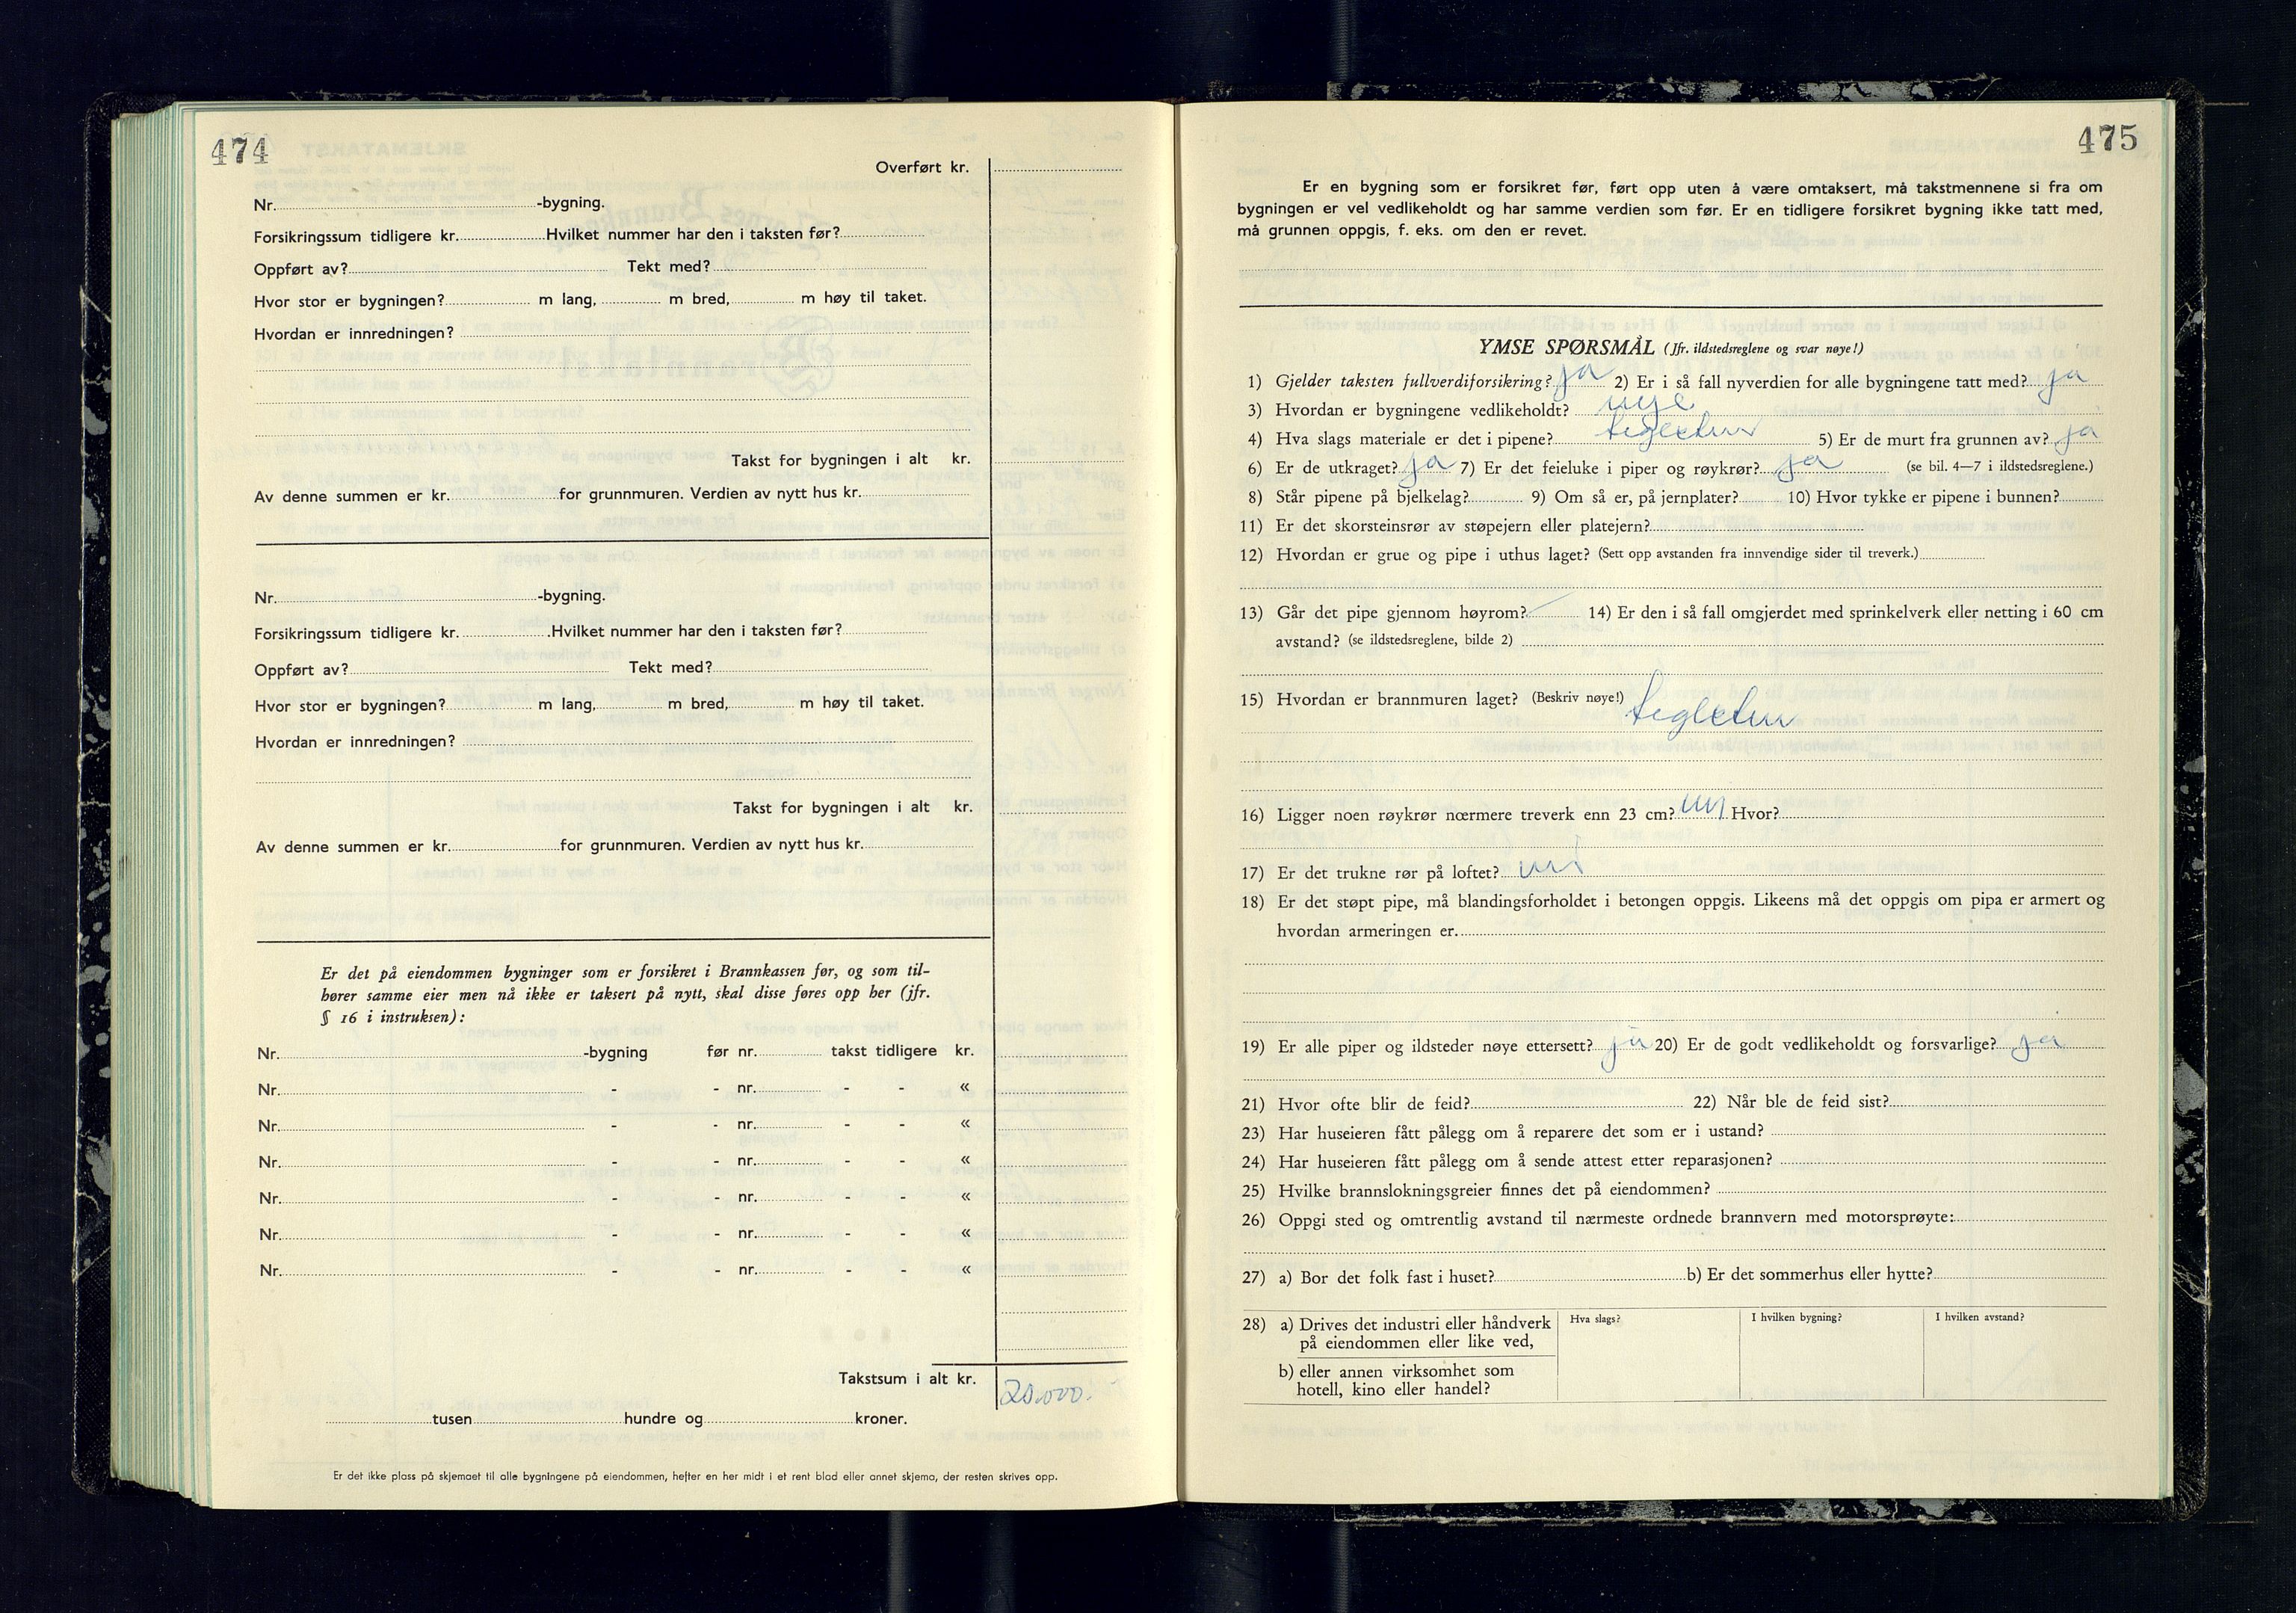 474
Overført kr.
Nr. -bygning.
Forsikringssum tidligere kr. Hvilket nummer har den i taksten før?
Oppført av? Tekt med?
Hvor stor er bygningen? m lang, m bred, m høy til taket.
Hvordan er innredningen?
Takst for bygningen i alt kr.
Av denne summen er kr. for grunnmuren. Verdien av nytt hus kr.
Nr. -bygning.
Forsikringssum tidligere kr. Hvilket nummer har den i taksten før?
Oppført av? Tekt med?
Hvor stor er bygningen? m lang, m bred, m høy til taket.
Hvordan er innredningen?
Takst for bygningen i alt kr.
Av denne summen er kr. for grunnmuren. Verdien av nytt hus kr.
Er det på eiendommen bygninger som er forsikret i Brannkassen før, og som til-
hører samme eier men nå ikke er taksert på nytt, skal disse føres opp her (jfr.
§ 16 i instruksen):
Nr. -bygning før nr. takst tidligere kr.
Nr. - - nr. - - «
Nr. - - nr. - - «
Nr. - - nr. - - «
Nr. - - nr. - - «
Nr. - - nr. - - «
Nr. - - nr. - - «
Takstsum i alt kr. 20.000.-
tusen hundre og kroner.
Er det ikke plass på skjemaet til alle bygningene på eiendommen, hefter en her midt i et rent blad eller annet skjema, der resten skrives opp.
475
Er en bygning som er forsikret før, ført opp uten å være omtaksert, må takstmennene si fra om
bygningen er vel vedlikeholdt og har samme verdien som før. Er en tidligere forsikret bygning ikke tatt med,
må grunnen oppgis, f. eks. om den er revet.
YMSE SPØRSMÅL (Jfr. ildstedsreglene og svar nøye!)
1) Gjelder taksten fullverdiforsikring? ja 2) Er i så fall nyverdien for alle bygningene tatt med? ja
3) Hvordan er bygningene vedlikeholdt? nye
4) Hva slags materiale er det i pipene? teglsten 5) Er de murt fra grunnen av? ja
6) Er de utkraget? ja 7) Er det feieluke i piper og røykrør? ja (se bil. 4—7 i ildstedsreglene.)
8) Står pipene på bjelkelag? 9) Om så er, på jernplater? 10) Hvor tykke er pipene i bunnen?
11) Er det skorsteinsrør av støpejern eller platejern?
12) Hvordan er grue og pipe i uthus laget? (Sett opp avstanden fra innvendige sider til treverk.)
13) Går det pipe gjennom høyrom? 14) Er den i så fall omgjerdet med sprinkelverk eller netting i 60 cm
avstand? (se ildstedsreglene, bilde 2)
15) Hvordan er brannmuren laget? (Beskriv nøye!) teglsten
16) Ligger noen røykrør nærmere treverk enn 23 cm? nei Hvor?
17) Er det trukne rør på loftet? nei
18) Er det støpt pipe, må blandingsforholdet i betongen oppgis. Likeens må det oppgis om pipa er armert og
hvordan armeringen er.
19) Er alle piper og ildsteder nøye ettersett? ja 20) Er de godt vedlikeholdt og forsvarlige? ja
21) Hvor ofte blir de feid? 22) Når ble de feid sist?
23) Har huseieren fått pålegg om å reparere det som er i ustand?
24) Har huseieren fått pålegg om å sende attest etter reparasjonen?
25) Hvilke brannslokningsgreier finnes det på eiendommen?
26) Oppgi sted og omtrentlig avstand til nærmeste ordnede brannvern med motorsprøyte:
27) a) Bor det folk fast i huset? b) Er det sommerhus eller hytte?
28) a) Drives det industri eller håndverk Hva slags? I hvilken bygning? I hvilken avstand?
på eiendommen eller like ved,
b) eller annen virksomhet som
hotell, kino eller handel?